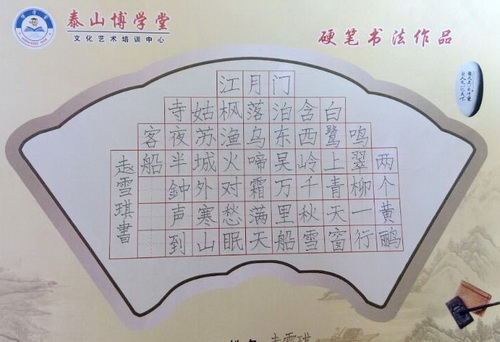 泰山博学堂
文化艺术培训中心
硬笔书法作品
两个黄鹂
鸣翠柳一行
白鹭上青天窗
含西岭千秋雪
门泊东吴万里船
月落乌啼霜满天
江枫渔火对愁眠
姑苏城外寒山
寺夜半鈡声到
客船
赵雪琪書